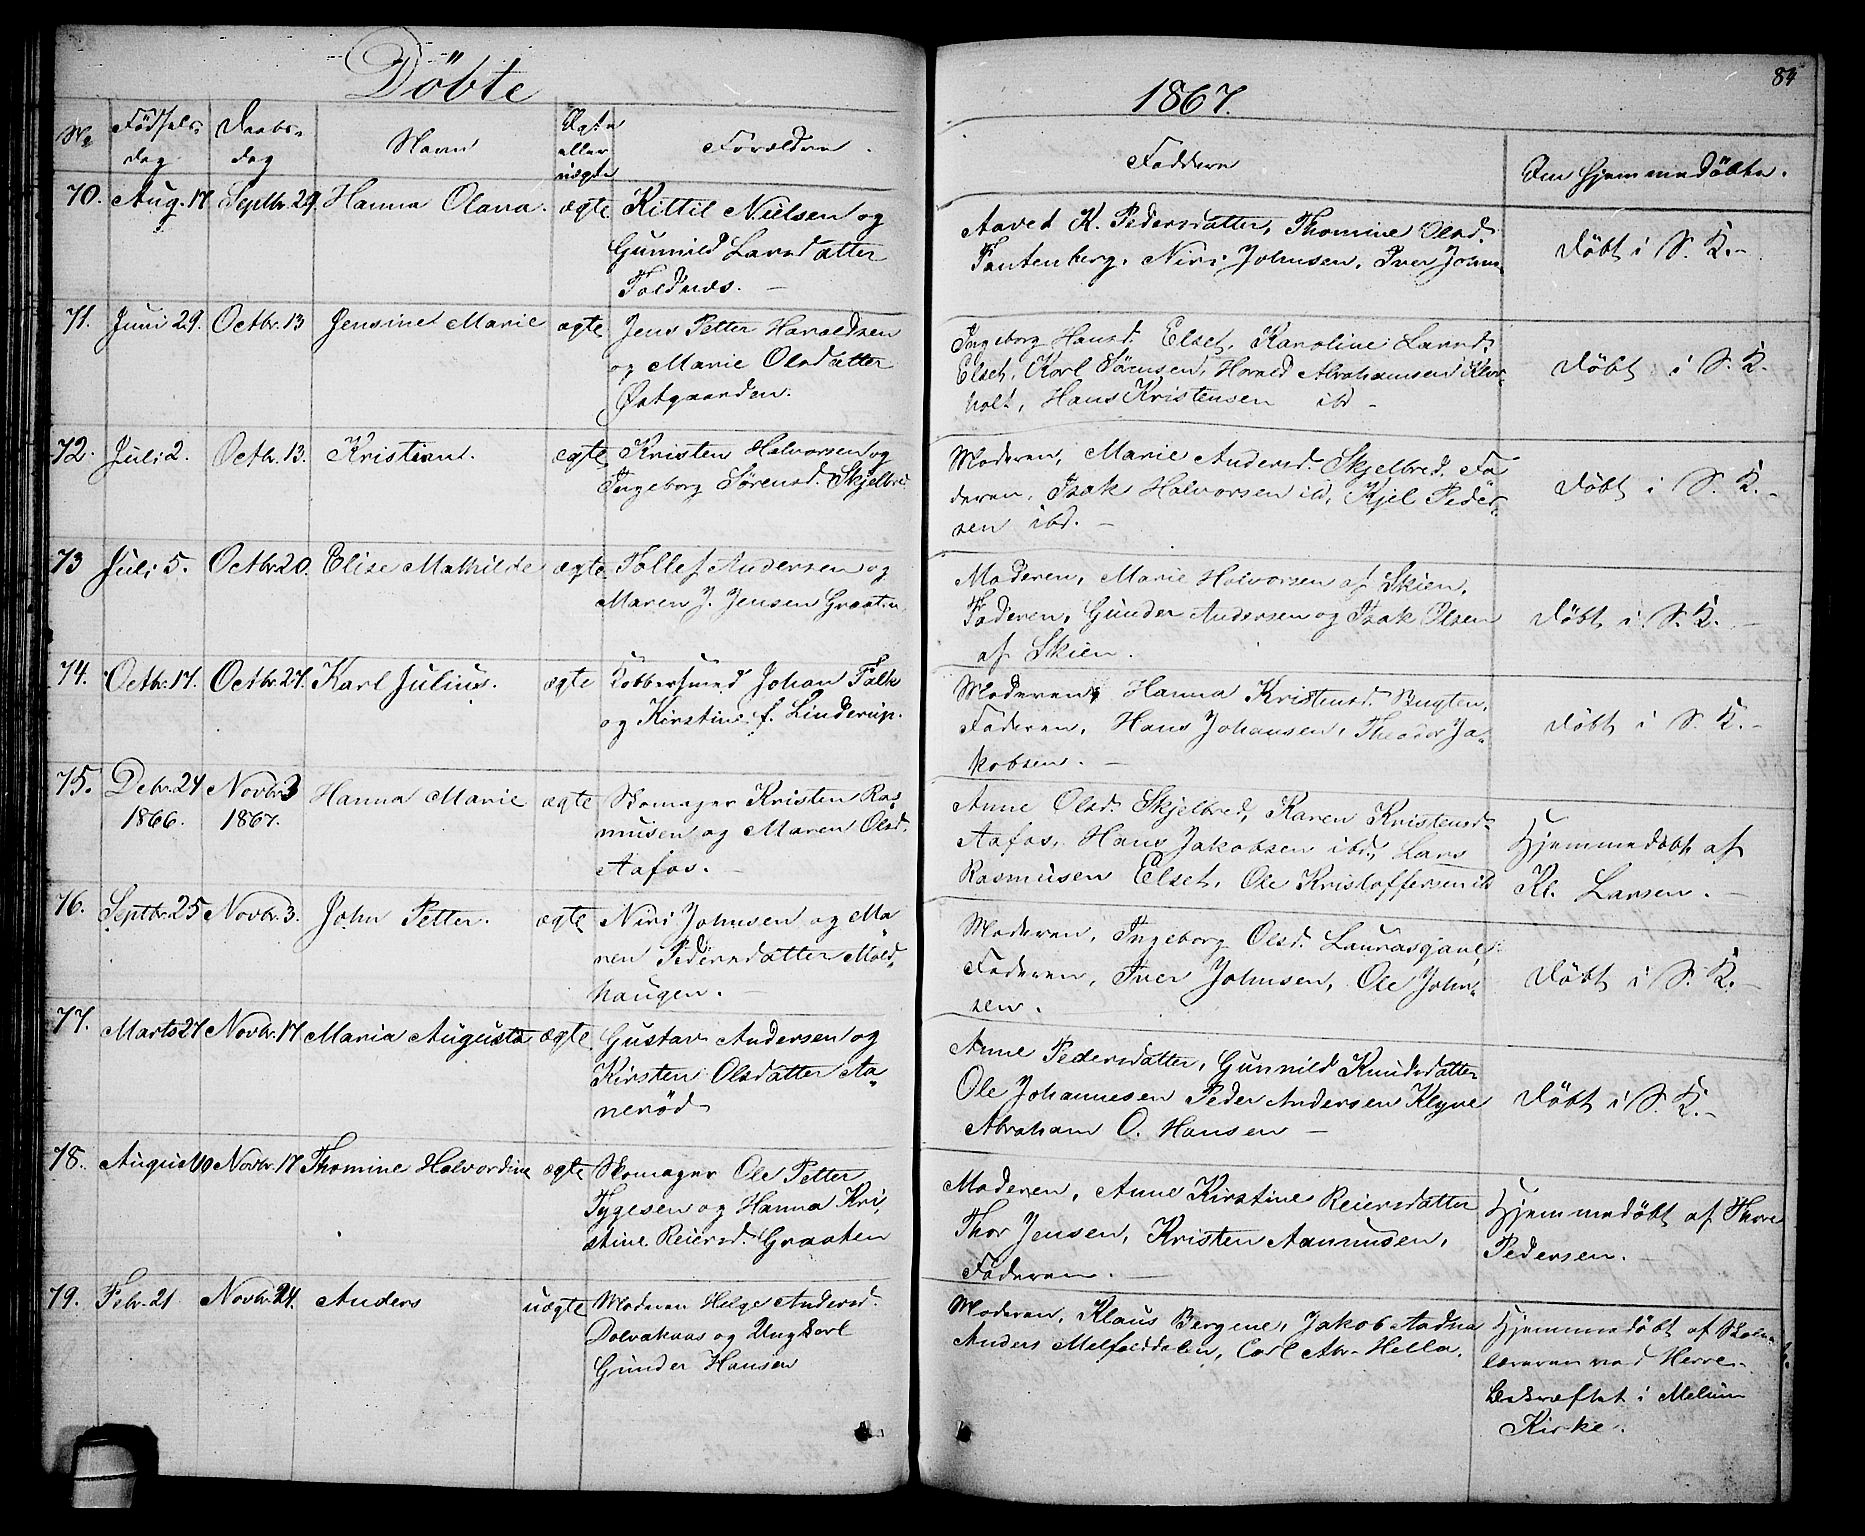 Döbte
1867.
84
No
Fødsels-
dag
Daabs-
dag
Navn
Ægte
eller
uægte
Forældre
Faddere
Om hjemmedöbte.
70. Aug. 17 Septbr. 29. Hanna Olava. ægte Kittil Nielsen og
Gunnild Larsdatter
Toldnæs. —
K. Pedersdatter, Thomine Olsd.
Fantenberg, Niri Johnsen, Iver Johns
Döbt i S. K. -
71. Juni 29. Octbr. 13 Jensine Marie ægte Jens Petter Haraldsen
og Marie Olsdatter
Østgaarden.
Ingeborg Hansd. Elset, Karoline Larsd.
Elset, Karl Sörensen, Harald Abrahamsen Klov-
holt, Hans Kristensen ibd -
Döbt i S. K.
72. Juli 2. Octbr. 13. Kristian. ægte Kristen Halvorsen og
Ingeborg Sörensd. Skjelbred
Moderen, Marie Andersd. Skjelbred, Fa-
deren, Isak Halvorsen ibd, Kjel Peder-
sen ibd. -
Döbt i S. K. -
73 Juli 5. Octbr. 20. Elise Mathilde ægte Tollef Andersen og
Maren J. Jensen Graaten
Moderen, Marie Halvorsen af Skien,
Faderen, Gunder Andersen og Isak Olsen
af Skien.
Döbt i S. K. -
74. Octbr. 17. Octbr. 27. Karl Julius. ægte Kobbersmed Johan Falk
og Kirstine f. Linderup.
Moderen, Hanna Kristensd. Bugten,
Faderen, Hans Johansen, Theodor Ja-
kobsen. -
Döbt i S. K. -
75. Debr. 24
1866.
Novbr. 3
1867.
Hanna Marie ægte Skomager Kristen Ras-
musen og Maren Olsd.
Aafos. -
Anne Olsd. Skjelbred, Karen Kristensd.
Aafos, Hans Jakobsen ibd., Lars
Rasmusen Elset, Ole Kristoffersen ib
Hjemmedöbt af
Kl. Larsen. -
76. Septbr. 25 Novbr. 3. John Petter. ægte Niri Johnsen og Ma-
ren Pedersdatter Mæld-
haugen. -
Moderen, Ingeborg Olsd.
Faderen, Iver Johnsen, Ole John-
sen.
Döbt i S. K. -
77. Marts 27 Novbr. 17 Maria Augusta ægte Gustav Andersen og
Kirsten Olsdatter Aa-
nerød
Anne Pedersdatter, Gunnild Knudsdatter
Ole Johannesen Peder Andersen Klyve
Abraham O. Hansen -
Döbt i S. K. -
78. August 10 Novbr. 17 Thomine Halvordine ægte Skomager Ole Petter
Tygesen og Hanna Kri-
stine Reiersd. Graaten
Moderen, Anne Kirstine Reiersdatter
Thor Jensen, Kristen Aamunsen,
Faderen. -
Hjemmedöbt af Thore
Pedersen. -
79. Febr. 21 Novbr. 24. Anders uægte Moderen Helge Andersd.
Dolvaknas og Ungkarl
Gunder Hansen
Moderen, Klaus Bergene, Jakob Aadna
Anders Melfalddalen, Carl Abr. Hella.
Hjemmedöbt af Skole-
læreren ved Herre.
Bekræftet i Melum
Kirke.